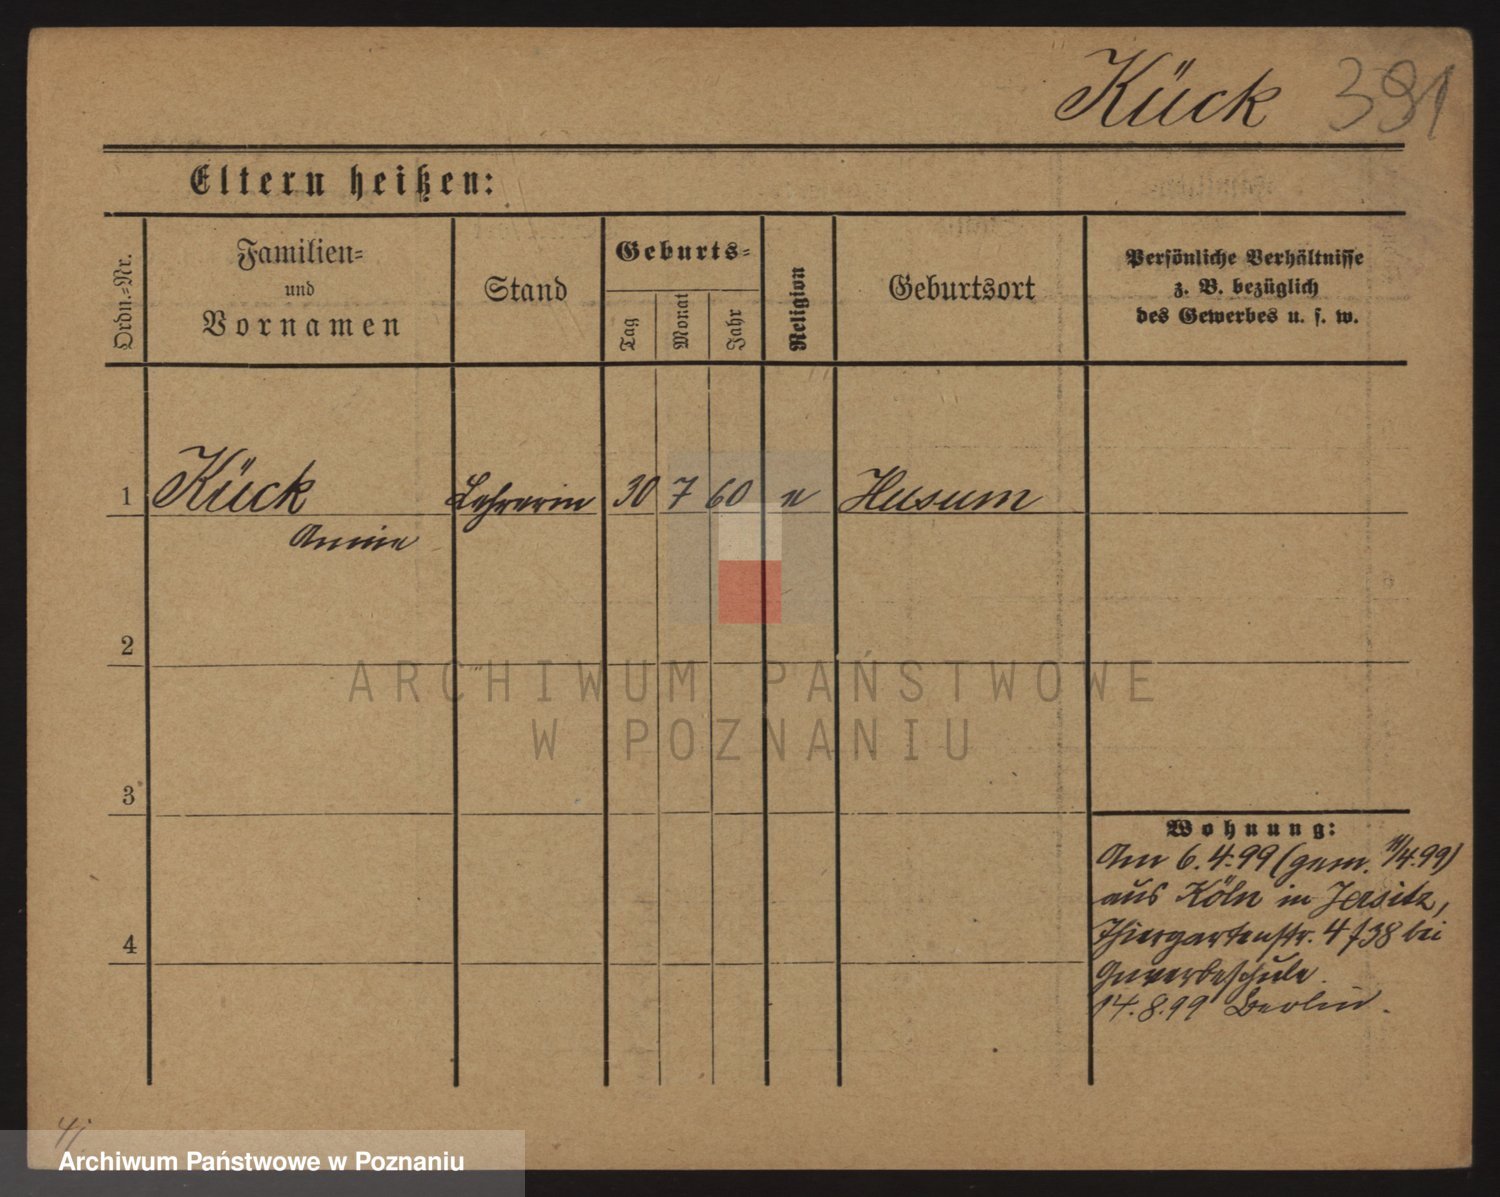 Kück 391
Eltern heißen:
Ordn.-Nr.
Familien-
und
Vornamen
Stand
Geburts-
Tag
Monat
Jahr
Religion
Geburtsort
Persönliche Verhältnisse
z. B. bezüglich
des Gewerbes u. s. w.
1 Kück Lehrerin 30 7 60 e Husum
2
ARCHIWUM PAŃSTWOWE
W POZNANIU
3
Wohnung:
Am 6.4.99 (gem. 11/4.99)
aus Köln in Jersitz,
Thiergartenstr. 4 / 38 bei
Gewerbeschule.
14.8.99 Berlin.
4
Archiwum Państwowe w Poznaniu